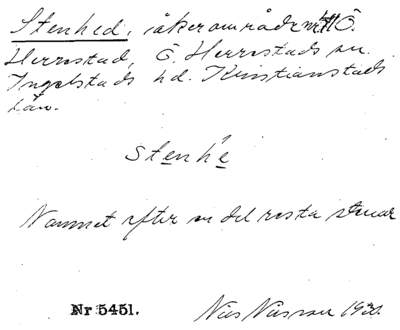 Stenhed, åkerområde nr 11 Ö.
Herrestad, Ö. Herrestads sn.
Ingelstads hd. Kristianstads
län.
stenhe
Namnet efter en del resta stenar
Nr 5451.
Nils Nilsson 1930.